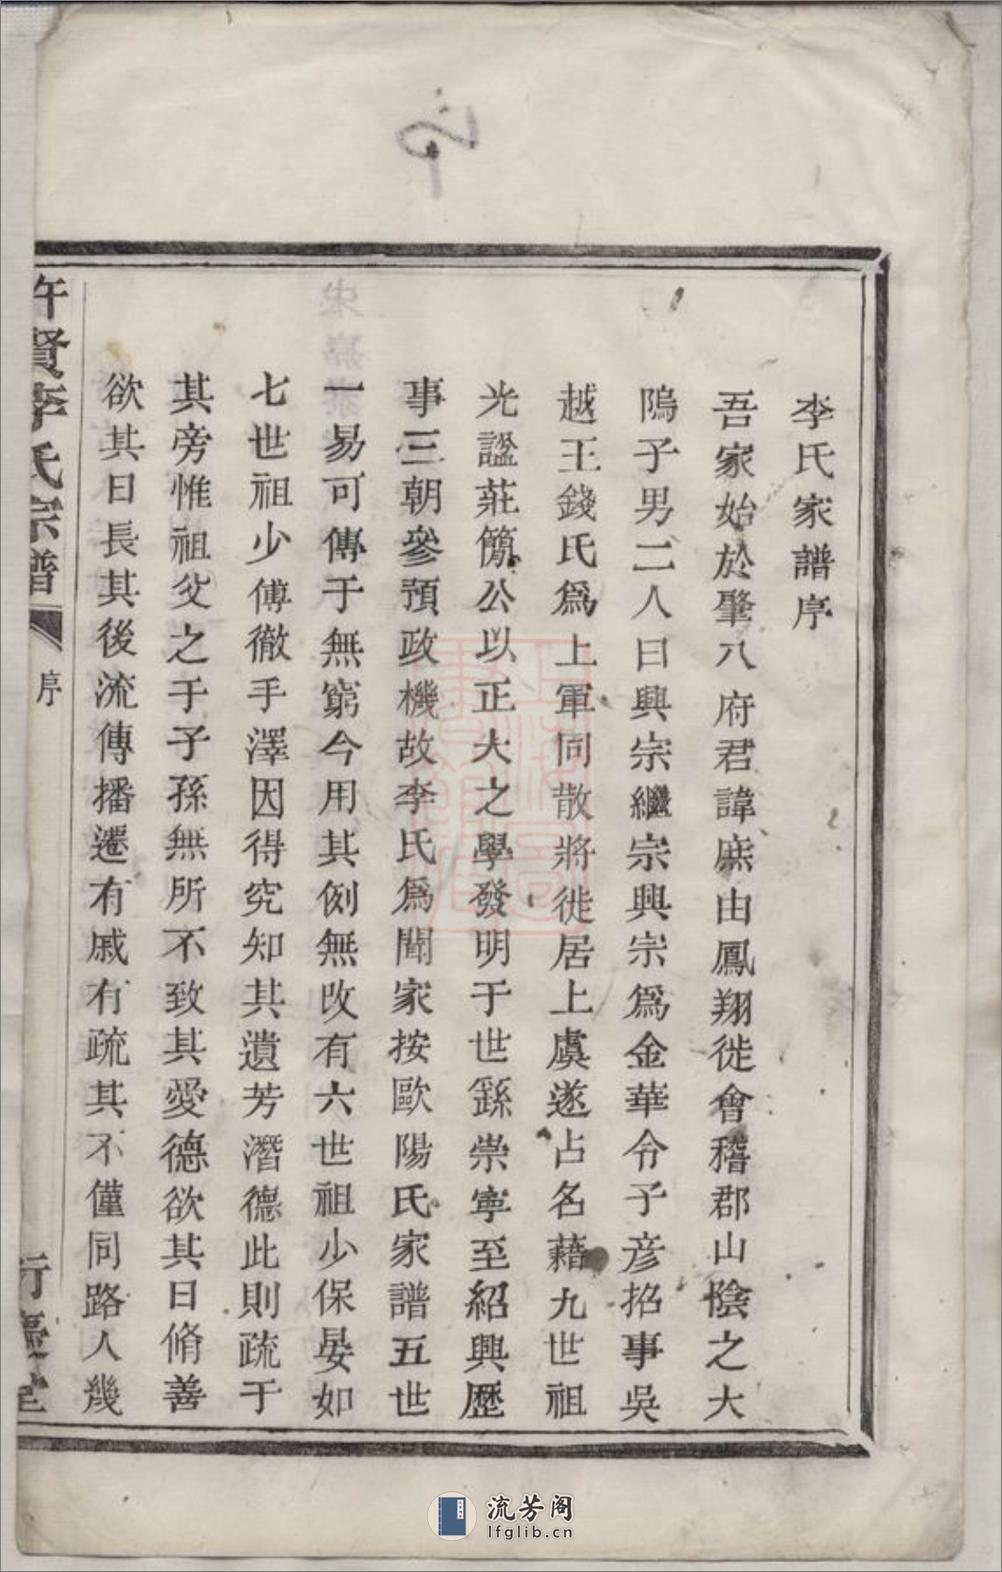 李氏家譜序
吾家始於肇八府君諱庶由鳳翔徙會稽郡山陰之大
隖子男二人曰興宗繼宗興宗爲金華令子彦招事吳
越王錢氏爲上軍同散將徙居上虞遂占名藉九世祖
光諡莊簡公以正大之學發明于世繇崇寧至紹興歷
事三朝參預政機故李氏爲聞家按歐陽氏家譜五世
一易可傳于無窮今用其例無改有六世祖少保晏如
七世祖少傅徹手澤因得究知其遺芳潛德此則疏于
其旁惟祖父之于子孫無所不致其愛德欲其日脩善
欲其日長其後流傳播遷有戚有疏其不僅同路人幾
許賢李氏宗譜
序
行慶堂
流芳阁
lfglib.cn